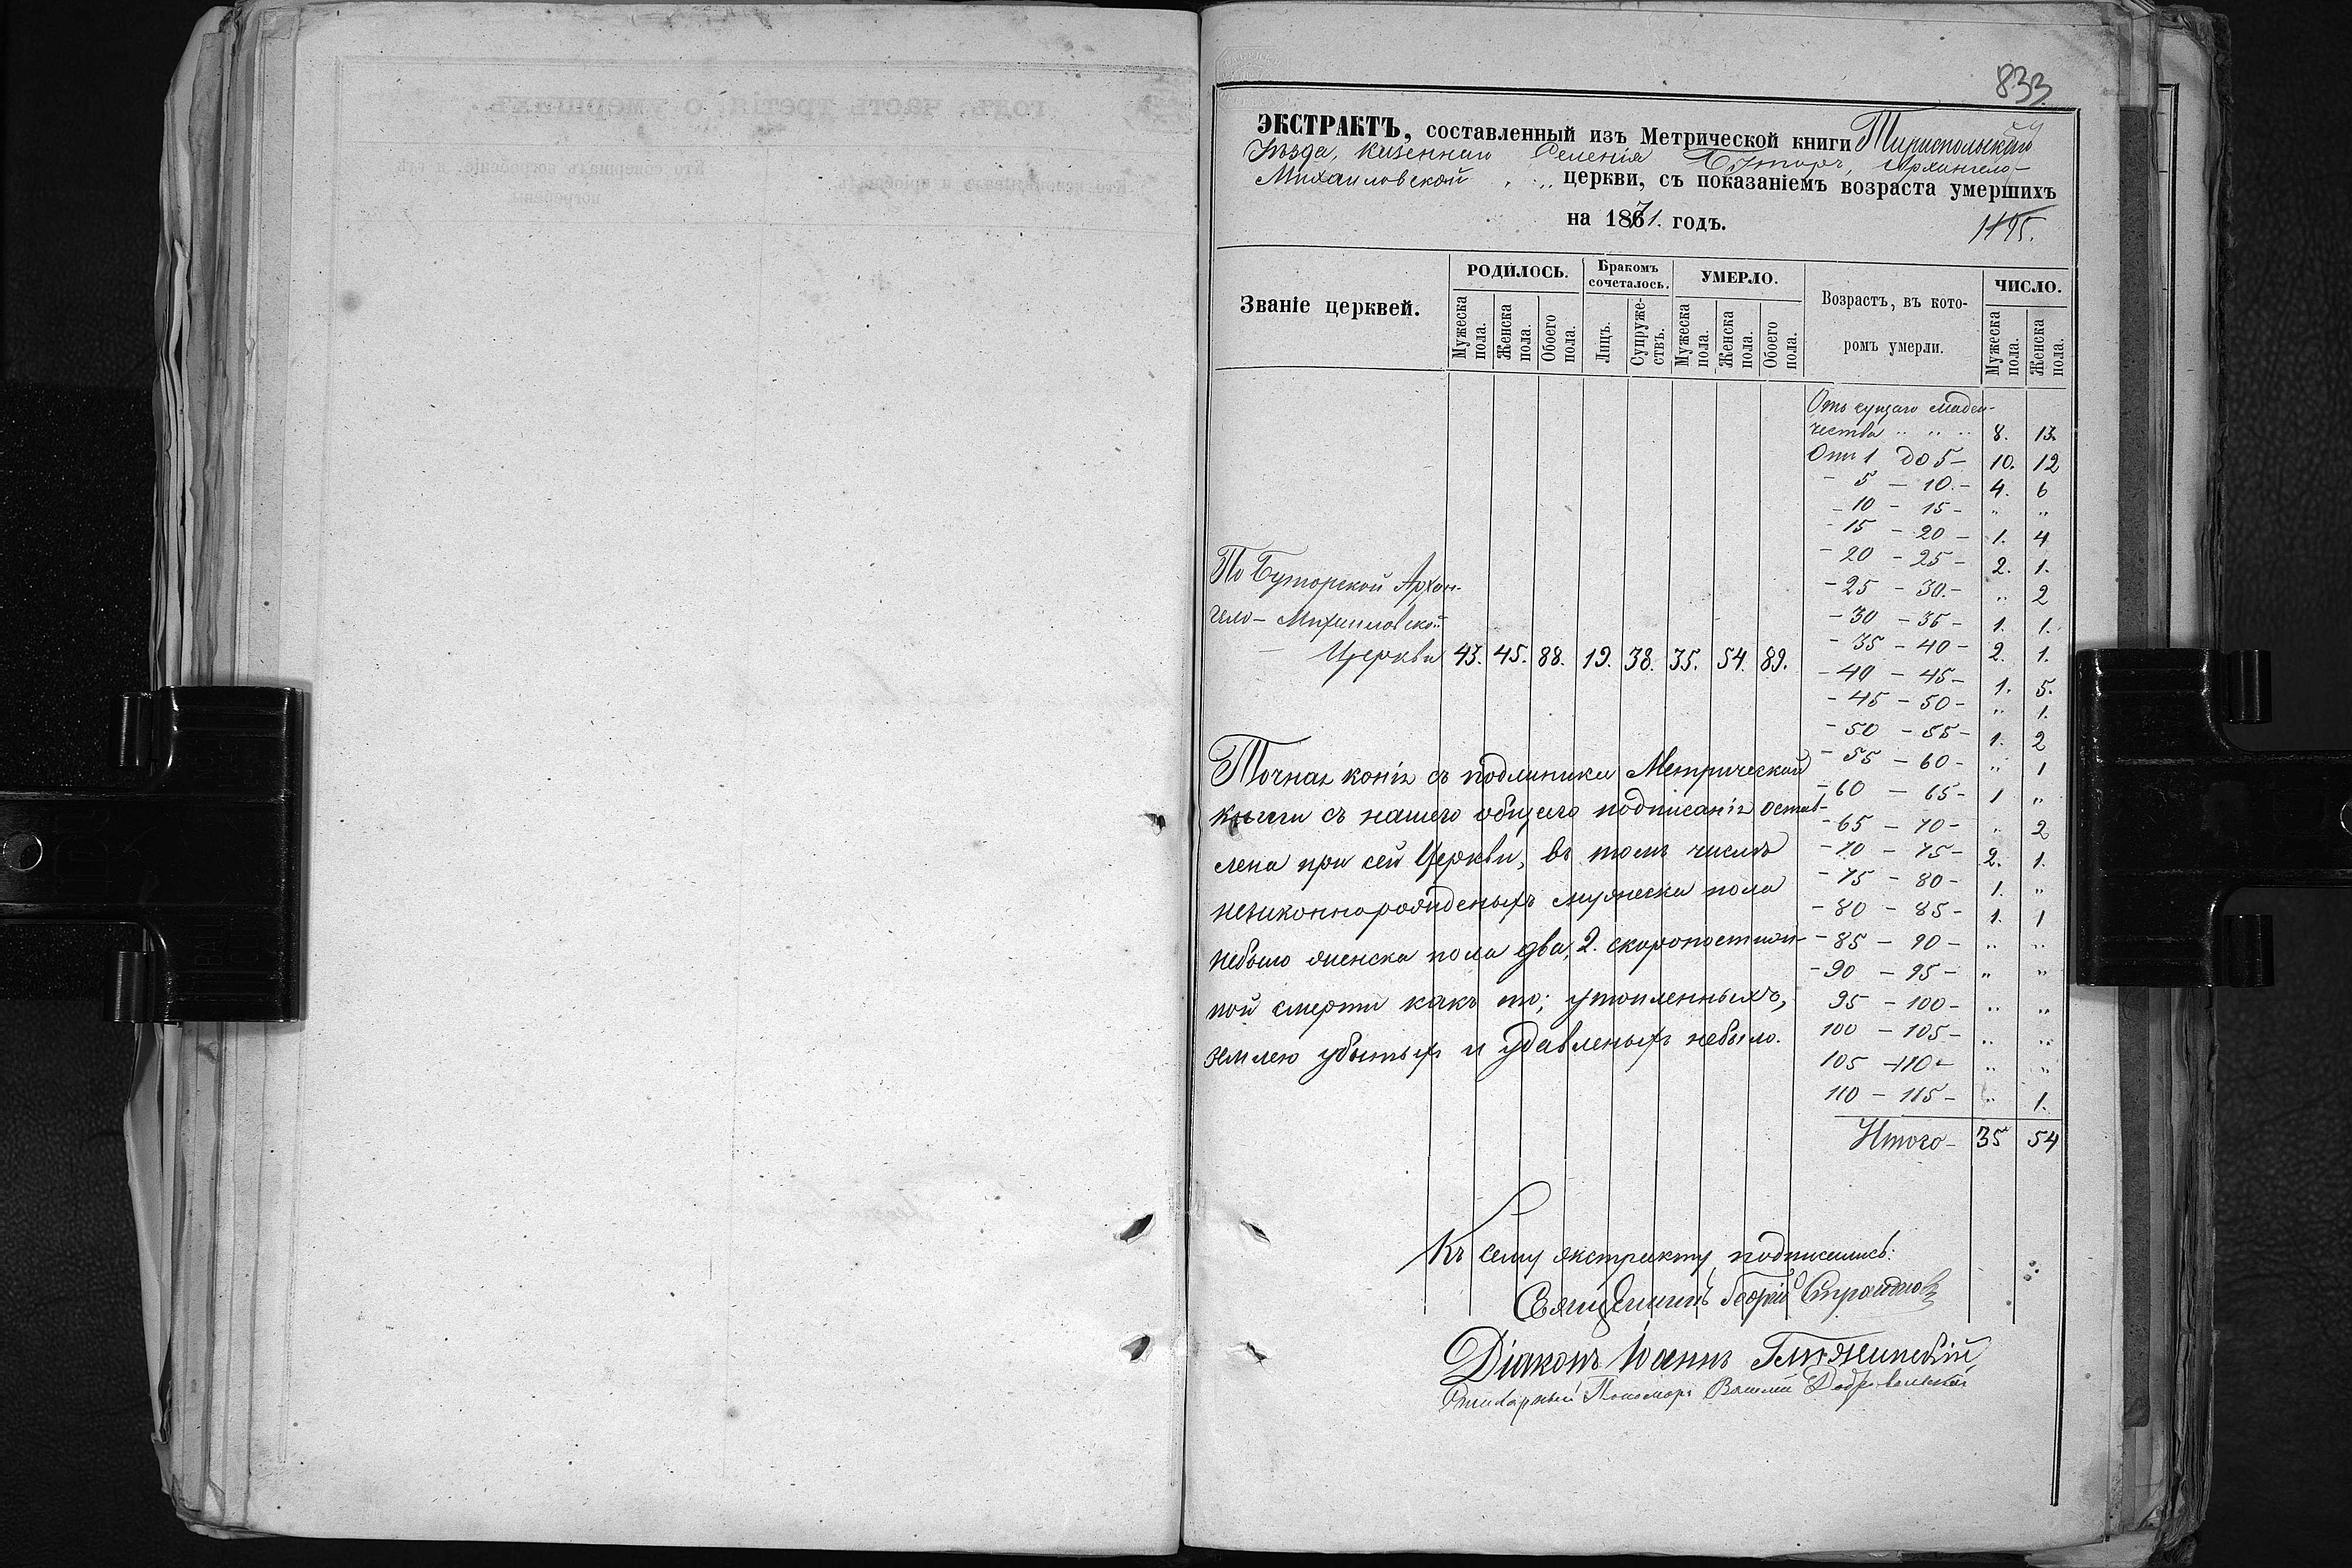 833
ЭКСТРАКТЪ, составленный изъ Метрической книги Тираспольскаго
Уѣзда, казеннаго Селенія Буторъ, Архангело-
Михаиловской церкви, съ показаніемъ возраста умершихъ
на 1871. годъ.
1195.
Званіе церквей.
РОДИЛОСЬ.
Бракомъ сочеталось.
УМЕРЛО.
Возрастъ, въ кото-
ромъ умерли.
ЧИСЛО.
Мужеска пола.
Женска пола.
Обоего пола.
Лицъ.
Супруже-ствъ.
Мужеска пола.
Женска пола.
Обоего пола.
Мужеска пола.
Женска пола.
Отъ сущаго младен-
чества „ „ „ 8. 13.
Отъ 1 до 5 - 10. 12
- 5 - 10. - 4. 6
- 10 - 15 - „ „
- 15 - 20 - 1. 4
- 20 - 25 - 2. 1.
- 25 - 30. - „ 2
- 30 - 35 - 1. 1.
- 35 - 40 - 2. 1.
- 40 - 45 - 1. 5.
- 45 - 50 - „ 1.
- 50 - 55 - 1. 2
- 55 - 60 - „ 1
- 60 - 65 - 1 „
- 65 - 70 - „ 2
- 70 - 75 - 2. 1.
- 75 - 80 - 1. „
- 80 - 85 - 1. 1
- 85 - 90 - „ „
- 90 - 95 - „ „
95 - 100 - „ „
100 - 105 - „ „
105 - 110 - „ „
110 - 115 - „ 1.
Итого - 35 54
По Буторской Архан-
гело - Михаиловской
Церкви 43. 45. 88. 19. 38. 35. 54. 89.
Точная копія съ подлиника Метрической
книги съ нашего общего подписанія остав-
лена при сей Церкви, въ томъ числѣ
незаконнарожденыхъ мужеска пола
небыло женска пола два, 2. скоропостиж-
ной смерти какъ то; утопленныхъ,
землею убитыхъ и удавленыхъ небыло.
Къ сему экстракту подписались:
Священникъ Георгій
Діаконъ Іоаннъ
Пономарь Василій Добровольскій